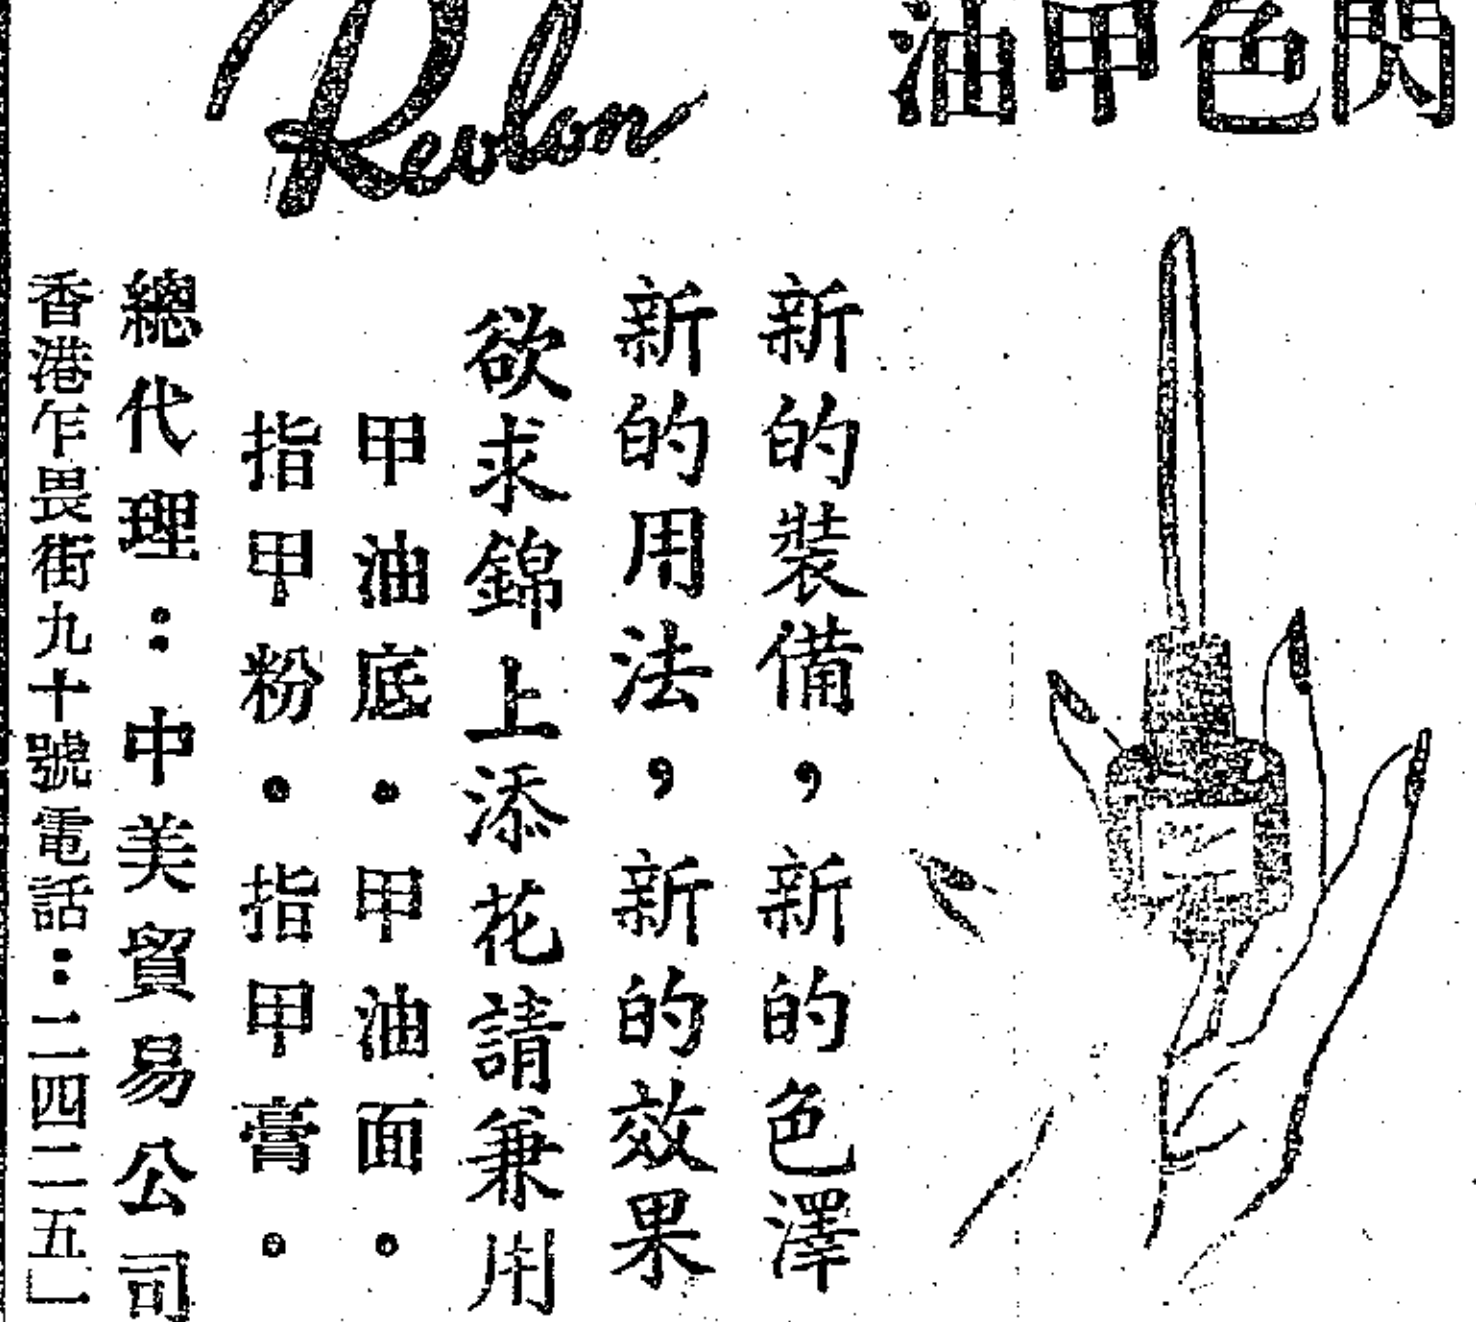 閃色甲油
Revlon
新的裝備，新的色澤
新的用法，新的效果
欲求錦上添花請兼用
甲油底。甲油面。
指甲粉。指甲膏。
總代理：中美貿易公司
香港乍畏街九十號電話：二四二五